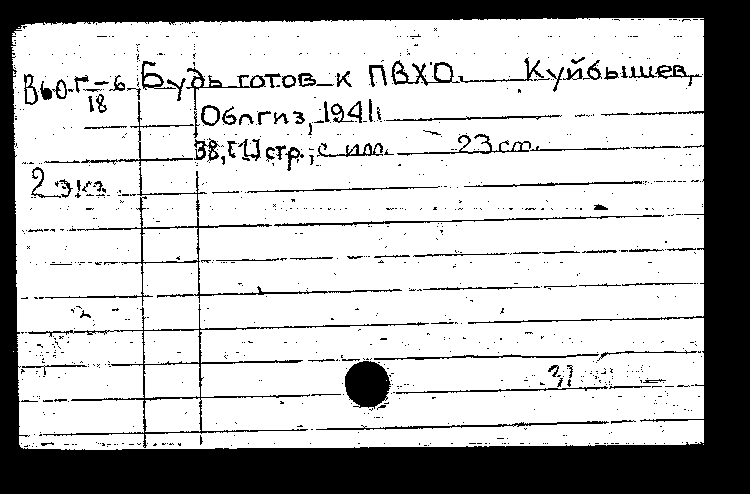 Будь готов к ПВХО. Куйбышев,
18
Облгиз, 1941
38,[1] стр., с илл. 23 см.
2 экз.
31